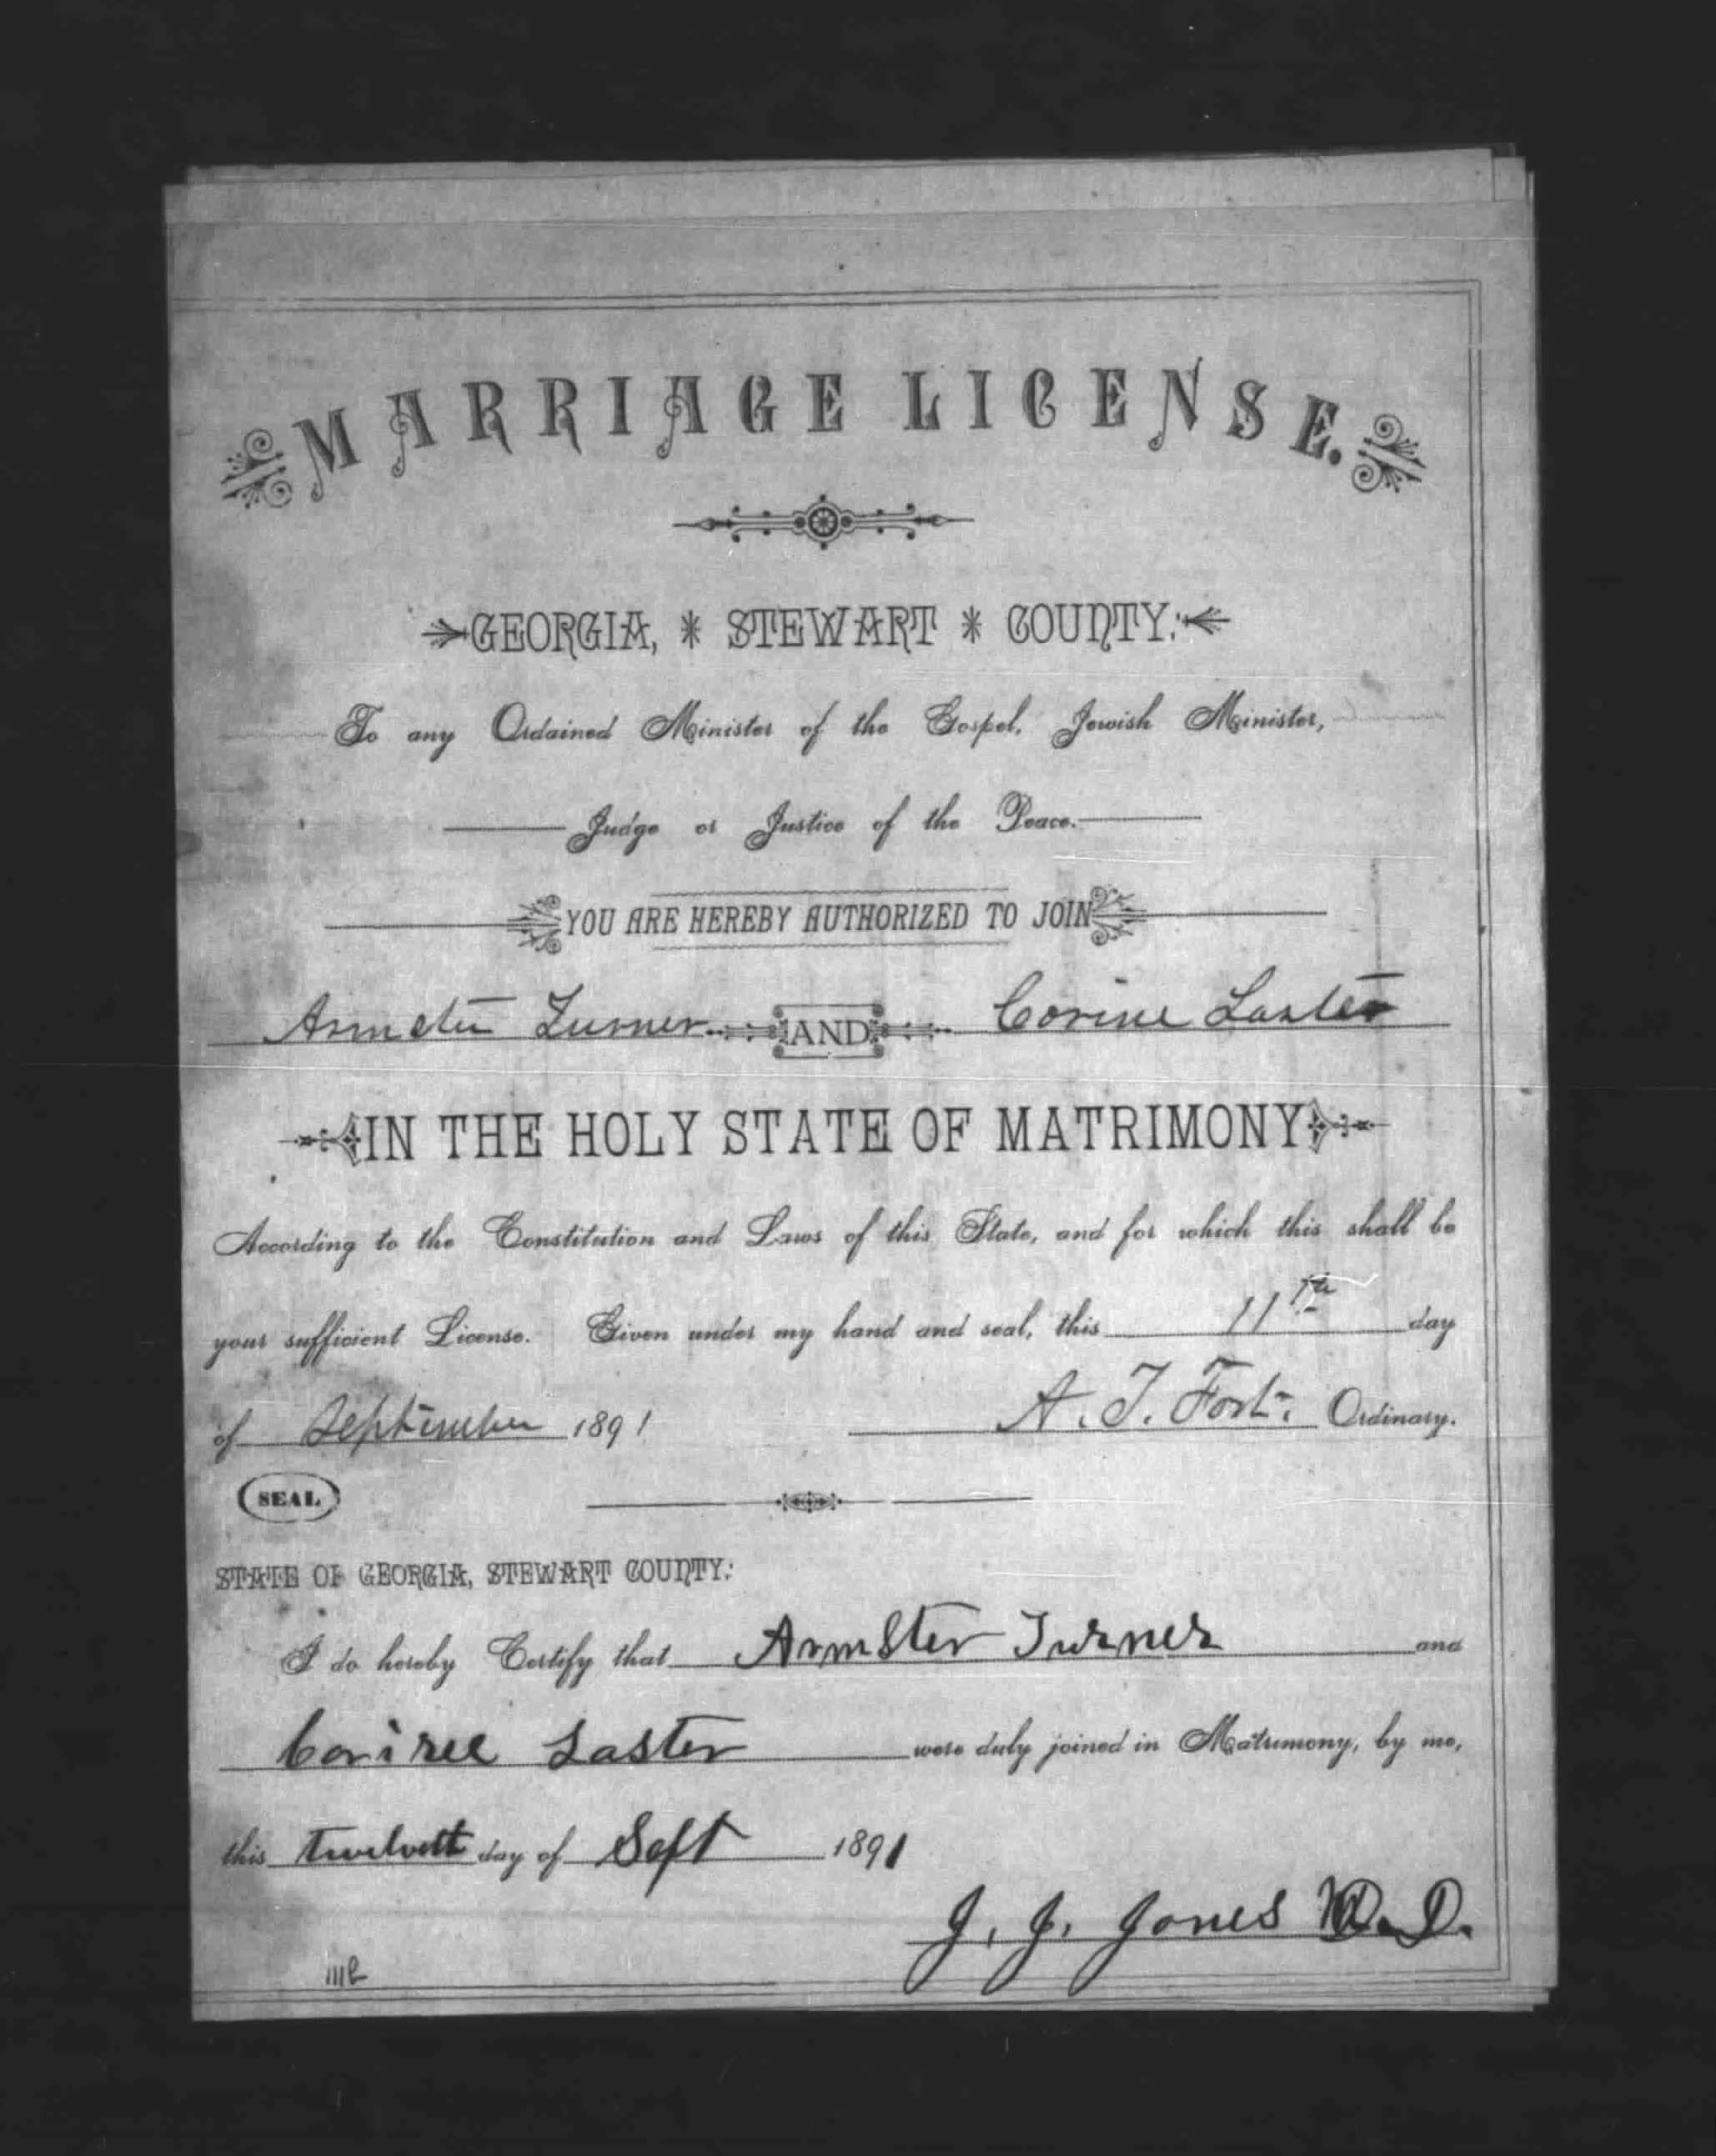 MARRIAGE LICENSE.
GEORGIA, * STEWART * COUNTY:
To any Ordained Minister of the Gospel, Jewish Minister,
Judge or Justice of the Peace.
YOU ARE HEREBY AUTHORIZED TO JOIN
Armster Turner AND Corine Laster
IN THE HOLY STATE OF MATRIMONY
According to the Constitution and Laws of this State, and for which this shall be
your sufficient License. Given under my hand and seal, this 11th day
of September 1891 A. T. Fort. Ordinary.
SEAL
STATE OF GEORGIA, STEWART COUNTY:
I do hereby Certify that Armster Turner and
Corinee Laster were duly joined in Matrimony, by me,
this twelvett day of Seft 1891
J. J. Jones D.